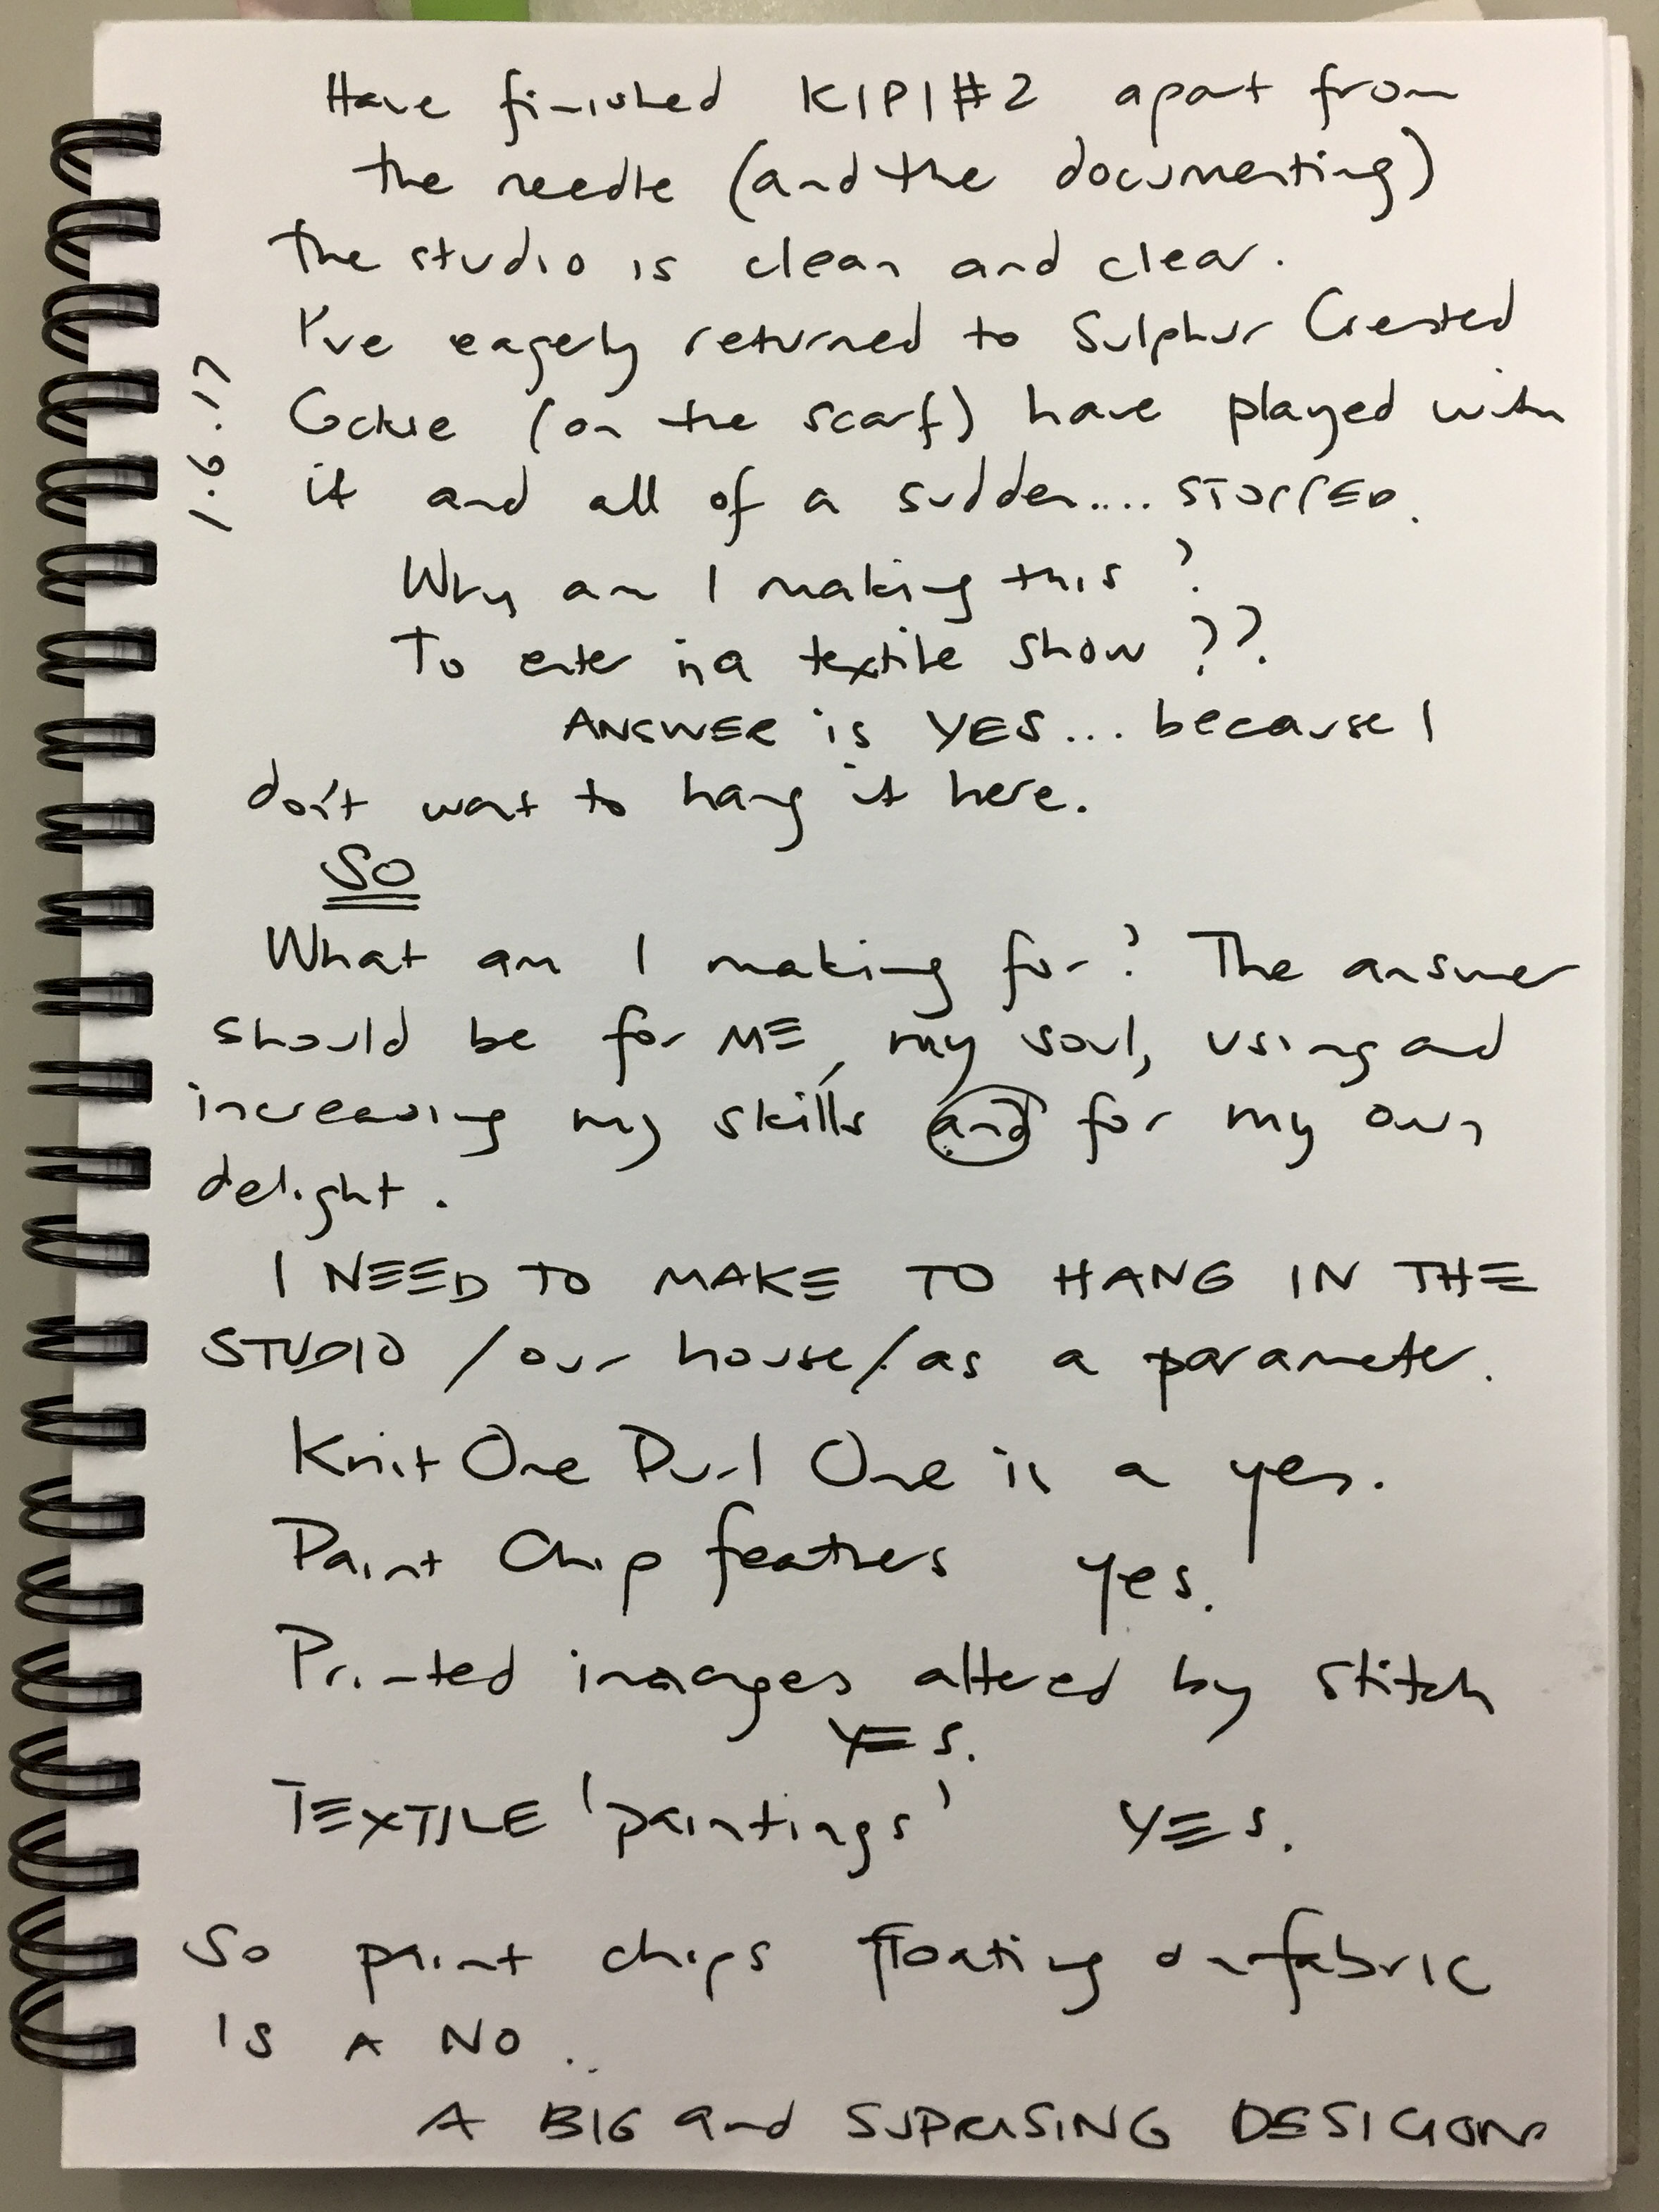 Have finished K1P1#2 apart from
the needle (and the documenting)
The studio is clean and clear.
I've eagerly returned to Sulphur Crested
1.6.17
Cockie (on the scarf) have played with
it and all of a sudden.... STOPPED.
Why am I making this?
To enter in a textile show ??
ANSWER is YES... because I
don't want to hang it here.
SO
What am I making for? The answer
should be for ME, my soul, using and
increasing my skills and for my own
delight.
I NEED TO MAKE TO HANG IN THE
STUDIO / our house/as a parameter.
Knit One Purl One is a yes.
Paint Chip feathers yes.
Printed images altered by stitch
YES.
TEXTILE 'paintings' YES.
So paint chips floating on fabric
IS A NO..
A BIG and SUPRISING DESICION